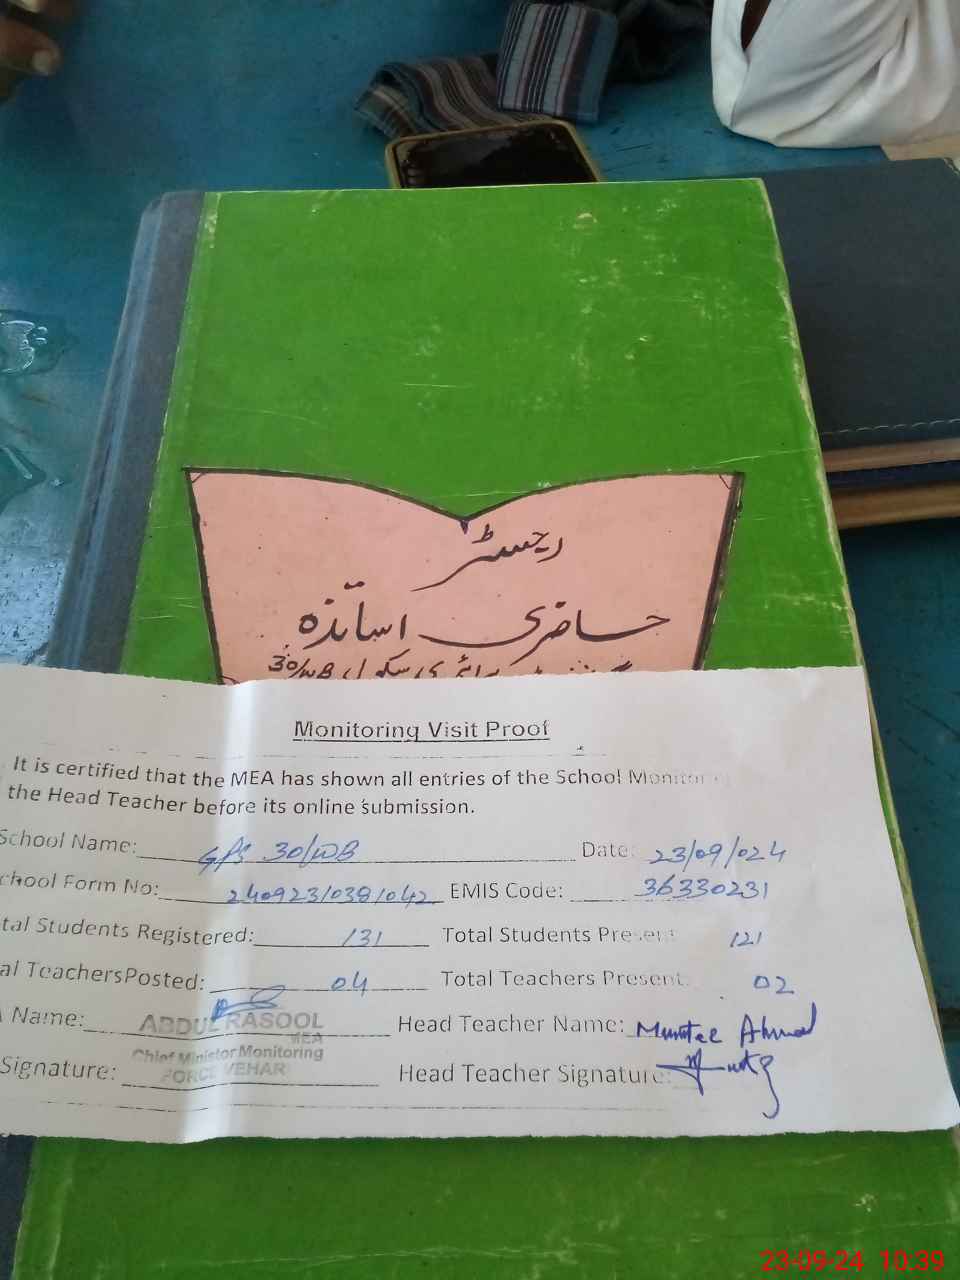 رجسٹر
حاضری اساتذہ
پرائمری سکول 30/WB
Monitoring Visit Proof
It is certified that the MEA has shown all entries of the School Monitor
the Head Teacher before its online submission.
School Name: GPS 30/WB Date: 23/09/024
chool Form No: 240923/038/042 EMIS Code: 36330231
tal Students Registered: 131 Total Students Present 121
al TeachersPosted: 04 Total Teachers Present: 02
Name: ABDUL RASOOL Head Teacher Name: Mumtaz Ahmad
MEA
Chief Minister Monitoring
Signature: FORCE VEHARI Head Teacher Signature:
23-09-24 10:39